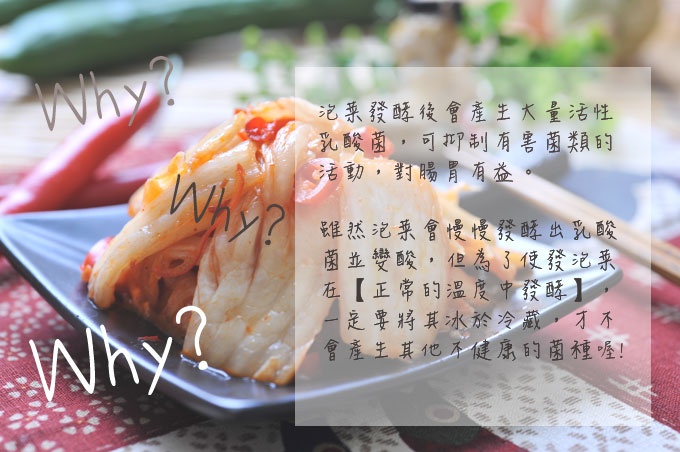 Why?
Why?
Why?
泡菜發酵後會產生大量活性
乳酸菌，可抑制有害菌類的
活動，對腸胃有益。
雖然泡菜會慢慢發酵出乳酸
菌並變酸，但為了使發泡菜
在【正常的溫度中發酵】，
一定要將其冰於冷藏，才不
會產生其他不健康的菌種喔!